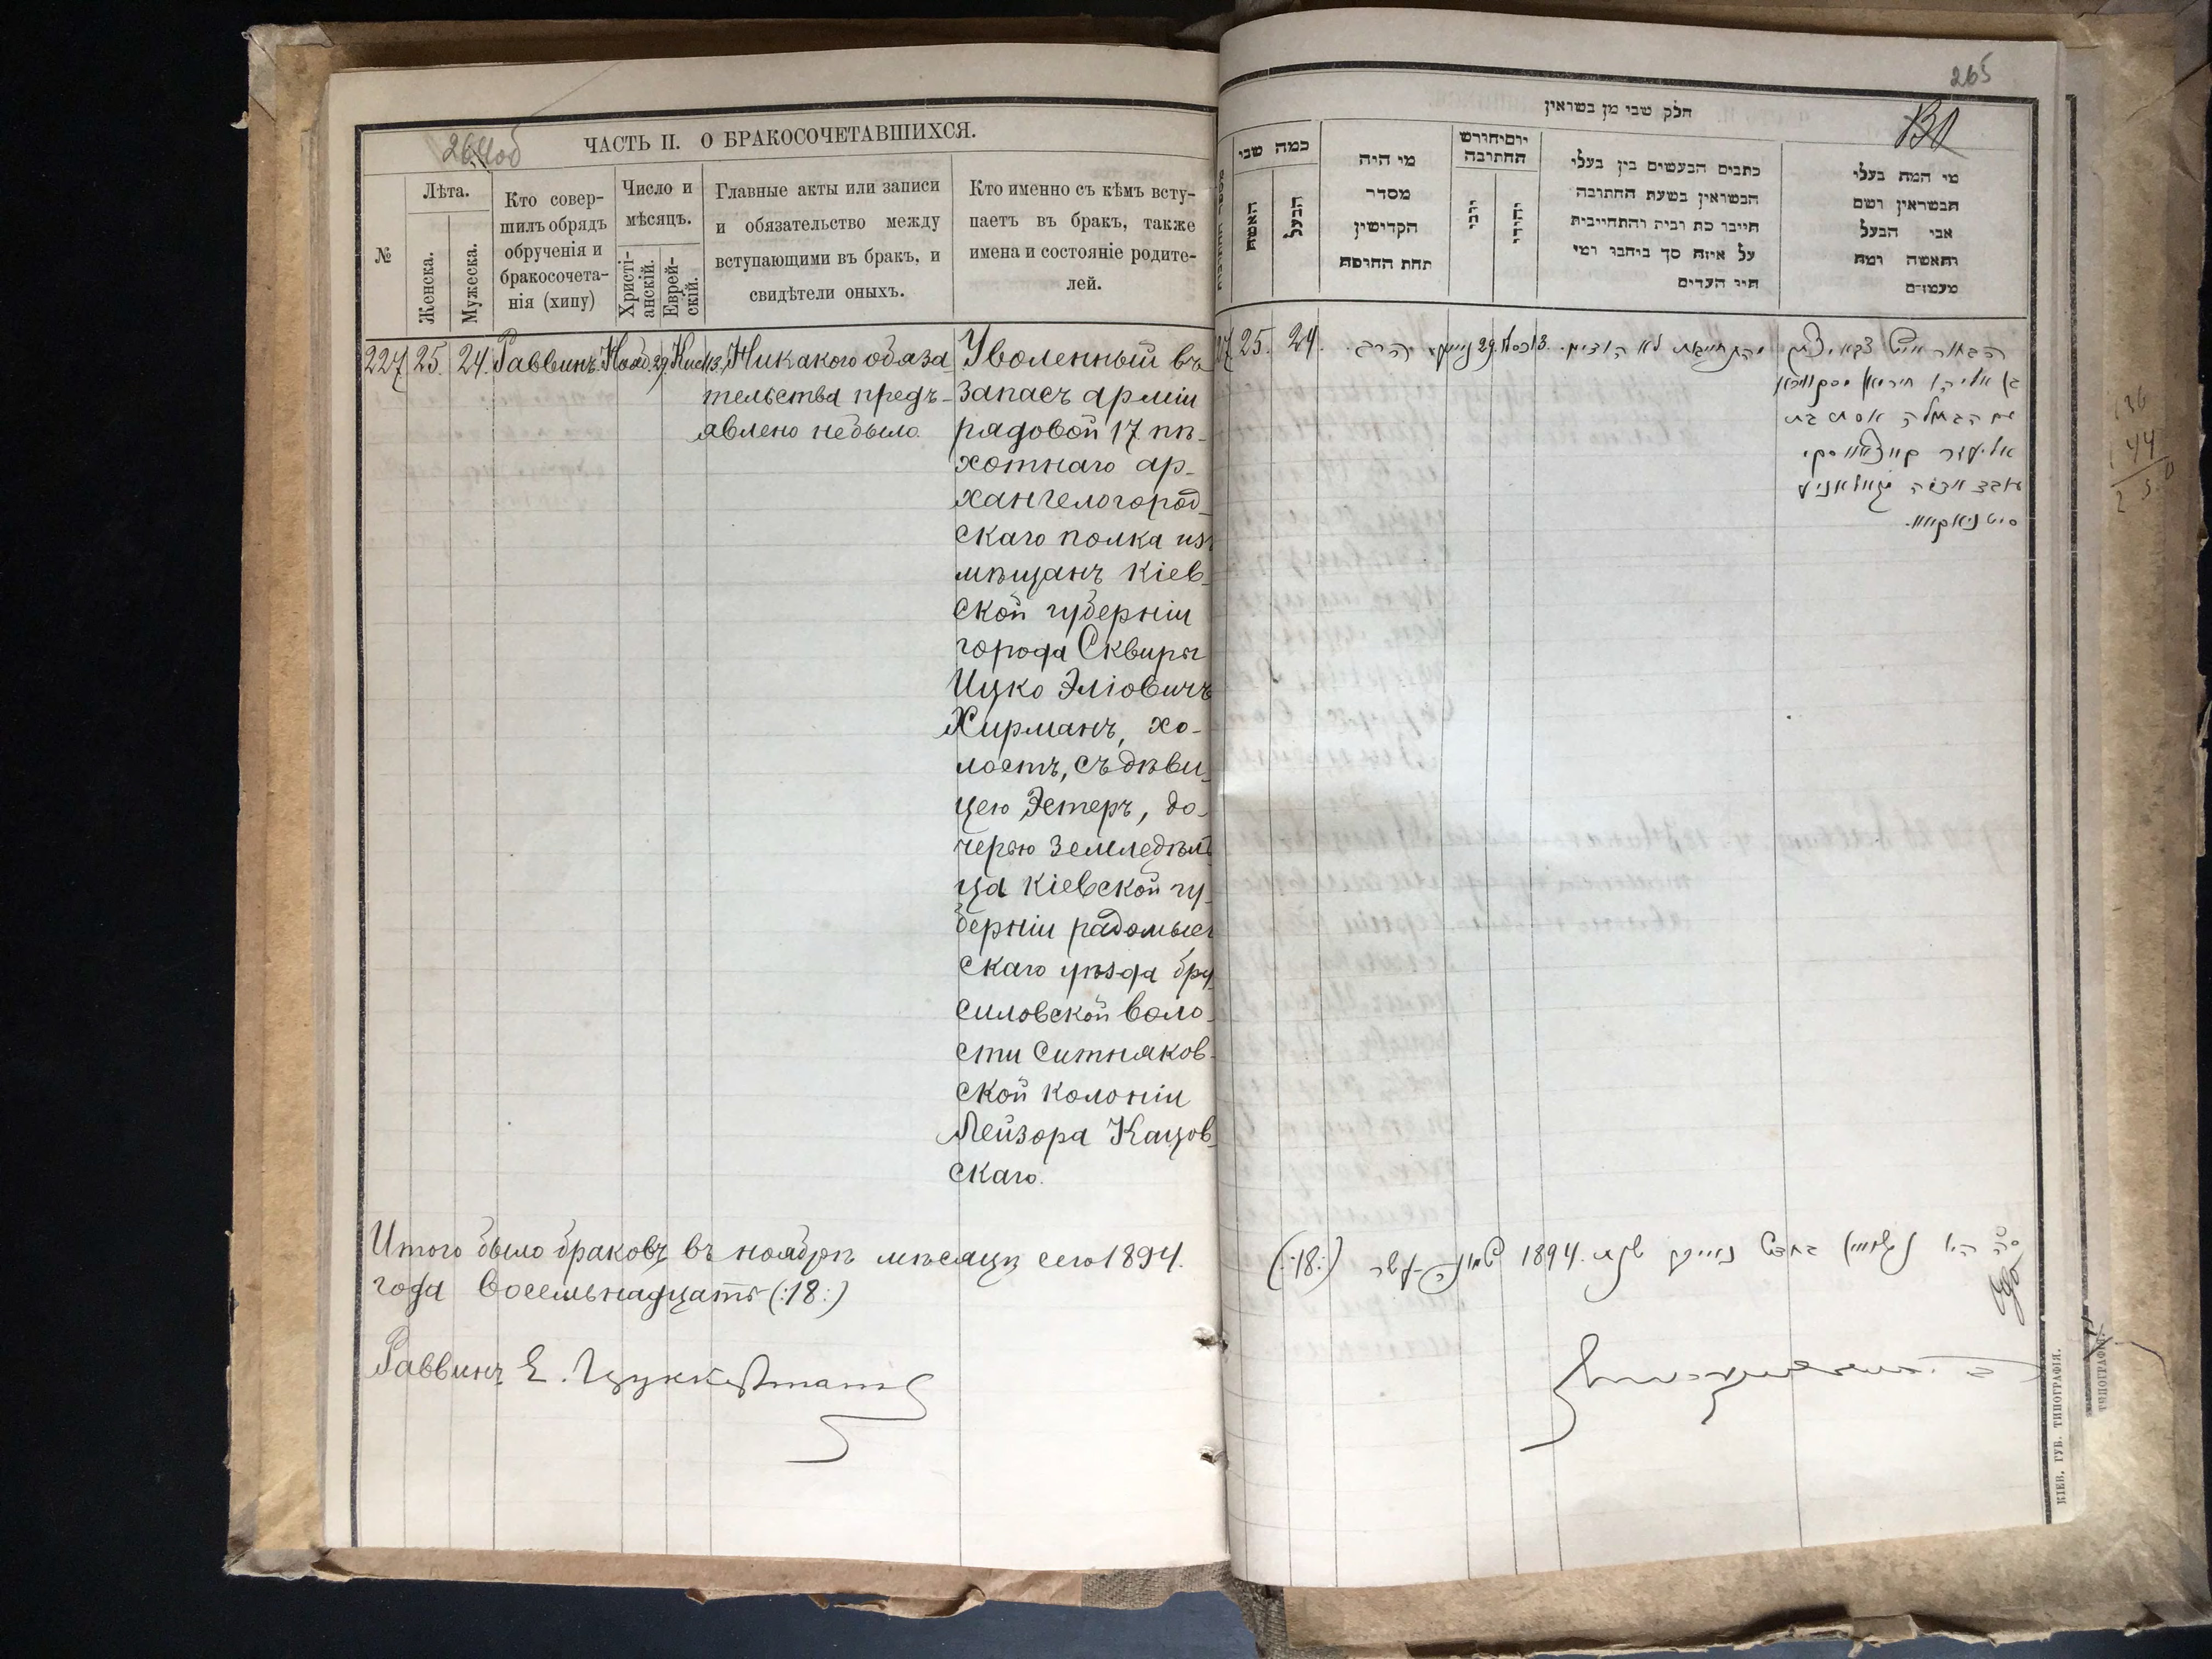 264об
ЧАСТЬ II. О БРАКОСОЧЕТАВШИХСЯ.
№
Лѣта.
Женска.
Мужеска.
Кто совер-
шилъ обрядъ
обрученія и
бракосочета-
нія (хипу)
Число и
мѣсяцъ.
Христі-
анскій.
Еврей-
скій.
Главные акты или записи
и обязательство между
вступающими въ бракъ, и
свидѣтели оныхъ.
Кто именно съ кѣмъ всту-
паетъ въ бракъ, также
имена и состояніе родите-
лей.
227 25. 24. Раввинъ. Нояб. 29 Кис. 13. Никакого обяза
тельства предъ-
явлено небыло.
Уволенный въ
запасъ арміи
рядовой 17 пѣ-
хотнаго ар-
хангелогород-
скаго полка изъ
мѣщанъ Кіев-
ской губерніи
города Сквиры
Ицко Эліовичъ
Хирманъ, хо-
лостъ, съ дѣви-
цею Эстеръ, до-
черью земледѣль
ца Кіевской гу-
берніи радомысл
скаго уѣзда бру
силовской воло-
сти Ситняков-
ской колоніи
Лейзора Кацов-
скаго.
Итого было браковъ въ ноябрѣ мѣсяцѣ сего 1894.
года восемьнадцать (:18:)
Раввинъ Е. Цуккерманъ
265
חלק שני מן נשואין
כמה שני
האשה
הבעל
מי היה
מסדר
הקדושין
תחת החופה
יום וחודש
החתונה
נוצרי
יהודי
כתבים הנעשים בין בעלי
הנשואין בשעת החתונה
חייבו כת וביה והתחייבות
על איזה סך ביחבו ומי
היו העדים
מי המה בעלי
הנשואין ושם
אבי הבעל
והאשה ומה
מעמדם
25. 24. הרב. 29 13. והתחייבות לא הודיעו.
בן אליהו חירמאן מסקווירא
עם הבתולה אסתר בת
אליעזר קאצאווסקי
סיטניאקאוו.
ס"ה היו נשואין בחדש נאיאבער שנת 1894. שמונה עשר (:18:)
КІЕВ. ГУБ. ТИПОГРАФІЯ.